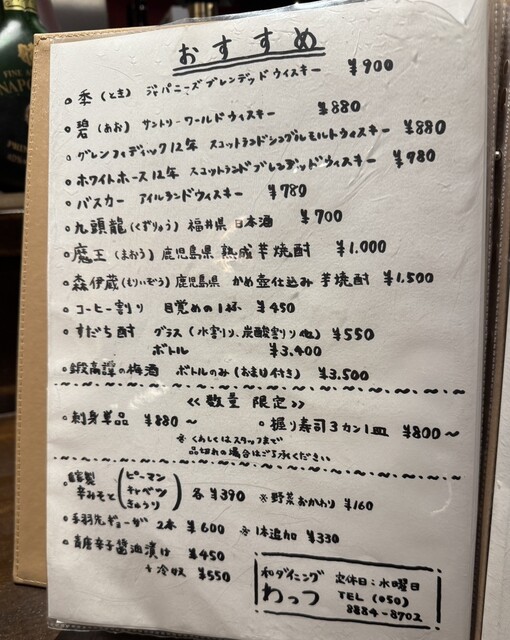 おすすめ
○季（とき）ジャパニーズブレンデッドウィスキー ¥900
○碧（あお）サントリーワールドウィスキー ¥880
○グレンフィディック12年 スコットランドシングルモルトウィスキー ¥880
○ホワイトホース12年 スコットランドブレンデッドウィスキー ¥780
○バスカー アイルランドウィスキー ¥780
○九頭龍（くずりゅう）福井県 日本酒 ¥700
○魔王（まおう）鹿児島県 熟成芋焼酎 ¥1.000
○森伊蔵（もりいぞう）鹿児島県 かめ壺仕込み 芋焼酎 ¥1,500
○コーヒー割り 目覚めの1杯 ¥450
○すだち酎 グラス（水割り、炭酸割り他）¥550
ボトル ¥3.400
○鍛高譚の梅酒 ボトルのみ（おまけ付き）¥3.500
≪数量限定≫
○刺身単品 ¥880～ ○握り寿司3カン1皿 ¥800～
※くわしくはスタッフまで
品切れの場合はご了承ください
○自家製辛みそと（ピーマン キャベツ きゅうり）各¥390 ※野菜おかわり ¥160
○手羽先ギョーザ 2本 ¥600 ※1本追加 ¥330
○青唐辛子醤油漬け ¥450
+冷奴 ¥550
和ダイニング 定休日：水曜日
わっつ TEL (050)
8884-8702